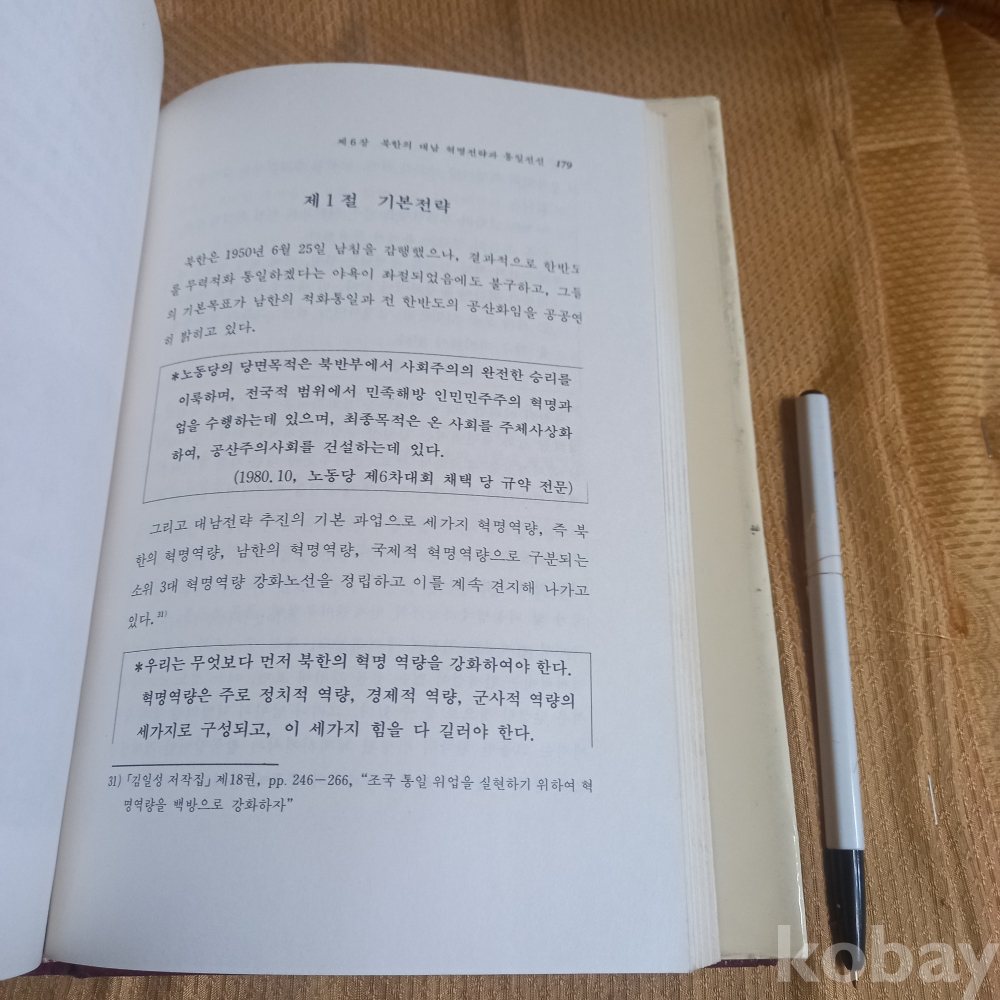 제6장 북한의 대남 혁명전략과 통일전선 179
제1절 기본전략
북한은 1950년 6월 25일 남침을 감행했으나, 결과적으로 한반도
를 무력적화 통일하겠다는 야욕이 좌절되었음에도 불구하고, 그들
의 기본목표가 남한의 적화통일과 전 한반도의 공산화임을 공공연
히 밝히고 있다.
*노동당의 당면목적은 북반부에서 사회주의의 완전한 승리를
이룩하며, 전국적 범위에서 민족해방 인민민주주의 혁명과
업을 수행하는데 있으며, 최종목적은 온 사회를 주체사상화
하여, 공산주의사회를 건설하는데 있다.
(1980. 10, 노동당 제6차대회 채택 당 규약 전문)
그리고 대남전략 추진의 기본 과업으로 세가지 혁명역량, 즉 북
한의 혁명역량, 남한의 혁명역량, 국제적 혁명역량으로 구분되는
소위 3대 혁명역량 강화노선을 정립하고 이를 계속 견지해 나가고
있다.31)
*우리는 무엇보다 먼저 북한의 혁명 역량을 강화하여야 한다.
혁명역량은 주로 정치적 역량, 경제적 역량, 군사적 역량의
세가지로 구성되고, 이 세가지 힘을 다 길러야 한다.
31) 「김일성 저작집」 제18권, pp. 246-266, “조국 통일 위업을 실현하기 위하여 혁
명역량을 백방으로 강화하자”
kobay